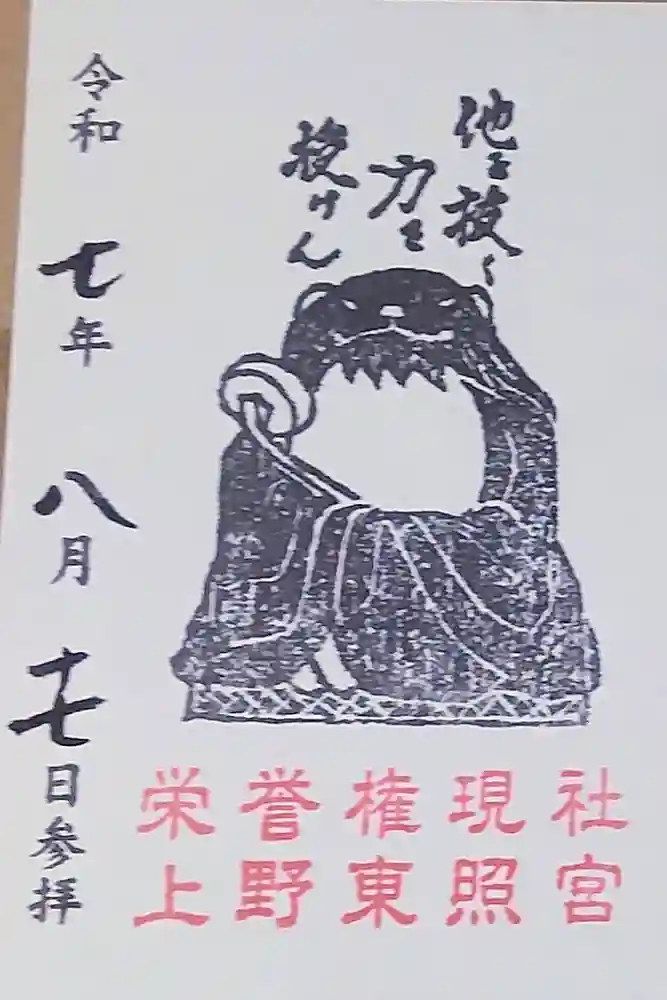 他を抜く
力を
授けん
令和 七年 八月 十七日参拝
栄誉権現社
上野東照宮